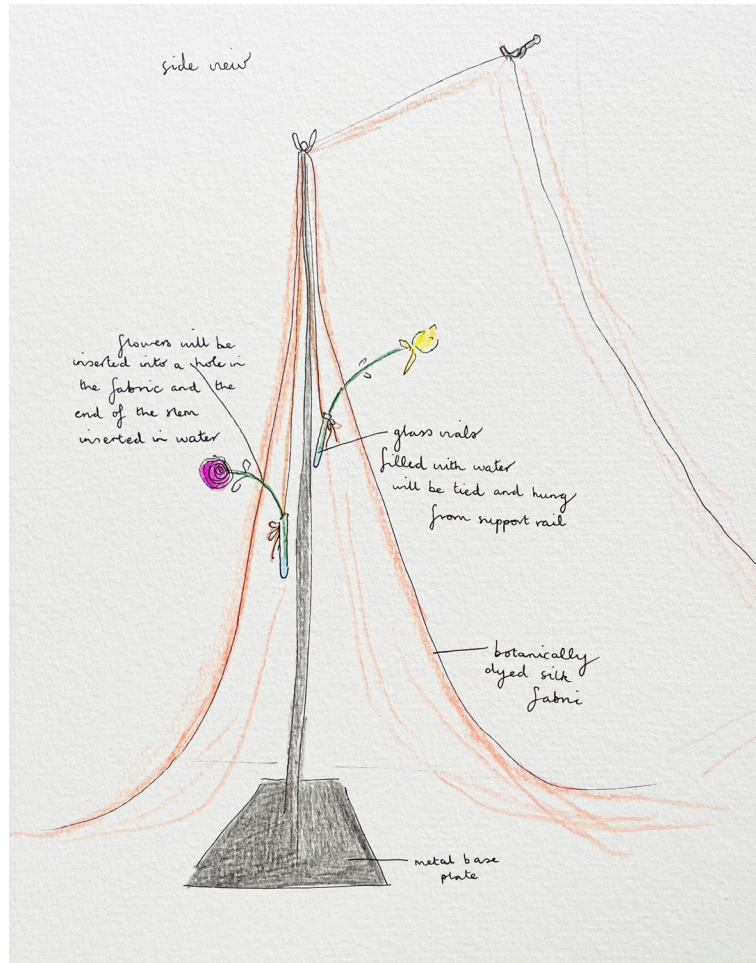 side view
flowers will be
inserted into a hole in
the fabric and the
end of the stem
inserted in water
glass vials
filled with water
will be tied and hung
from support rail
botanically
dyed silk
fabric
metal base
plate